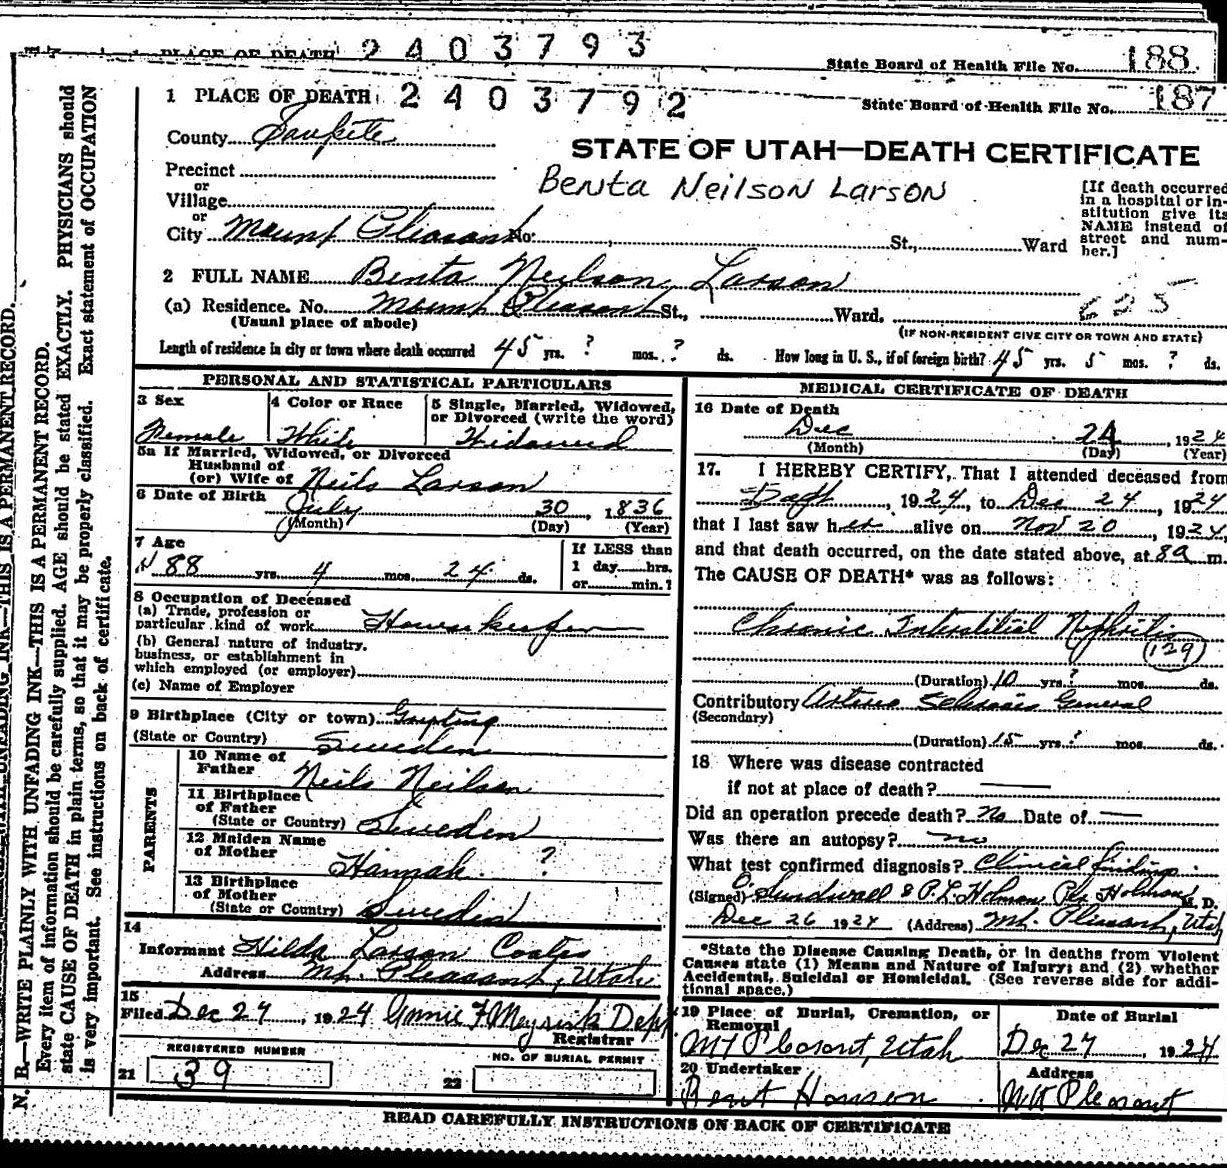 PLACE OF DEATH 2403793 State Board of Health File No. 188
1 PLACE OF DEATH 2403792 State Board of Health File No. 187
County Sanpete
STATE OF UTAH—DEATH CERTIFICATE
Benta Neilson Larson
Precinct
or
Village
or
City Mount Pleasant No. St., Ward
[If death occurred
in a hospital or in-
stitution give its
NAME instead of
street and num-
ber.]
2 FULL NAME Benta Neilson Larson
(a) Residence. No. Mount Pleasant St., Ward.
(Usual place of abode) (IF NON-RESIDENT GIVE CITY OR TOWN AND STATE)
Length of residence in city or town where death occurred 45 yrs. ? mos. ? ds. How long in U. S., if of foreign birth? 45 yrs. 5 mos. ? ds.
PERSONAL AND STATISTICAL PARTICULARS
3 Sex 4 Color or Race 5 Single, Married, Widowed,
or Divorced (write the word)
Female White Widowed
5a If Married, Widowed, or Divorced
Husband of
(or) Wife of Neils Larson
6 Date of Birth July 30, 1836
(Month) (Day) (Year)
7 Age
88 yrs. 4 mos. 24 ds.
If LESS than
1 day hrs.
or min.?
8 Occupation of Deceased
(a) Trade, profession or
particular kind of work Housekeeper
(b) General nature of industry,
business, or establishment in
which employed (or employer)
(c) Name of Employer
9 Birthplace (City or town)
(State or Country) Sweden
PARENTS
10 Name of
Father Neils Neilson
11 Birthplace
of Father
(State or Country) Sweden
12 Maiden Name
of Mother Hannah ?
13 Birthplace
of Mother
(State or Country) Sweden
14
Informant Hilda Larson Coates
Address Mt. Pleasant, Utah
15
Filed Dec 27, 1924
Registrar
REGISTERED NUMBER
21 39
NO. OF BURIAL PERMIT
22
MEDICAL CERTIFICATE OF DEATH
16 Date of Death
Dec 24, 1924
(Month) (Day) (Year)
17. I HEREBY CERTIFY, That I attended deceased from
Sept, 1924, to Dec 24, 1924
that I last saw her alive on Nov 20, 1924,
and that death occurred, on the date stated above, at 8a m.
The CAUSE OF DEATH* was as follows:
Chronic Interstitial Nephritis
(129)
(Duration) 10 yrs. ? mos. ds.
Contributory Arterio Sclerosis General
(Secondary)
(Duration) 15 yrs. ? mos. ds.
18 Where was disease contracted
if not at place of death? —
Did an operation precede death? No Date of —
Was there an autopsy? no
What test confirmed diagnosis? Clinical findings
(Signed) O. Sundwall & P. L. Holman Per Holman M. D.
Dec 26 1924 (Address) Mt. Pleasant, Utah
*State the Disease Causing Death, or in deaths from Violent
Causes state (1) Means and Nature of Injury; and (2) whether
Accidental, Suicidal or Homicidal. (See reverse side for addi-
tional space.)
19 Place of Burial, Cremation, or
Removal
Mt Pleasant, Utah
Date of Burial
Dec 27 1924
20 Undertaker
Bent Hanson
Address
Mt Pleasant
READ CAREFULLY INSTRUCTIONS ON BACK OF CERTIFICATE
N. B.—WRITE PLAINLY WITH UNFADING INK—THIS IS A PERMANENT RECORD.
Every item of information should be carefully supplied. AGE should be stated EXACTLY. PHYSICIANS should
state CAUSE OF DEATH in plain terms, so that it may be properly classified. Exact statement of OCCUPATION
is very important. See instructions on back of certificate.